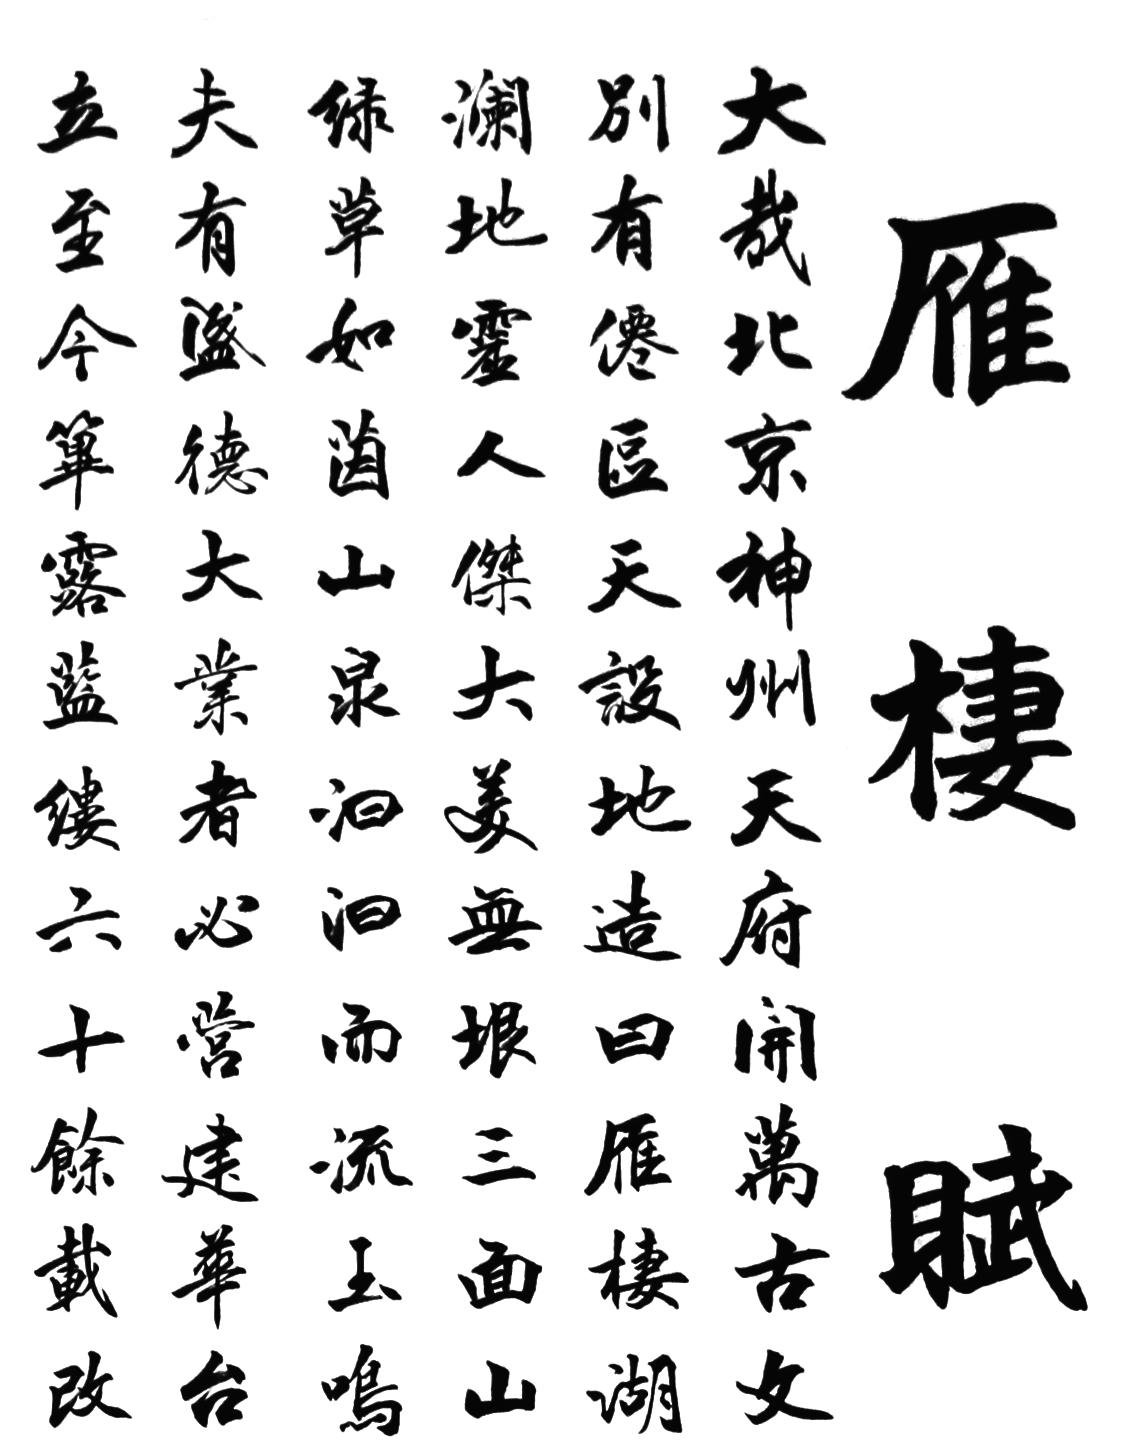 雁棲賦
大哉北京神州天府開萬古文
別有僊區天設地造曰雁棲湖
瀾地靈人傑大美無垠三面山
绿草如茵山泉汩汩而流玉鳴
夫有盛德大業者必營建華台
立至今篳露藍縷六十餘載改